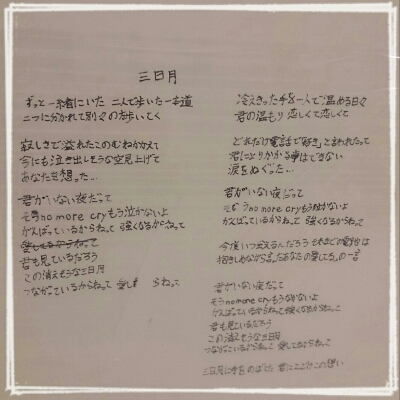 三日月
ずっと一緒にいた 二人で歩いた一本道
二つに分かれて別々の 歩いてく
寂しさで溢れたこのむねかかえて
今にも泣き出しそうな空見上げて
あなたを想った…
君がいない夜だって
そう no more cry もう泣かないよ
がんばっているからねって 強くなるからねって
君も見ているだろう
この消えそうな三日月
つながっているからねって 愛し らねって
冷えきった手を一人で温める日々
君の温もり 恋しくて恋しくて
どれだけ電話で「好き」と言われたって
君によりかかる事はできない
涙をぬぐった…
君がいない夜だって
そう no more cry もう泣かないよ
がんばっているからねって 強くなるからねって
今度いつ会えるんだろう それまでの電池は
抱きしめながら言ったあなたの愛してるの一言
君がいない夜だって
そう no more cry もうなかないよ
がんばっているからねって強くなるからねって
君も見ているだろう
この消えそうな三日月
つながっているからねって 愛してるからねって
三日月に手をのばした 君にとどけこの想い